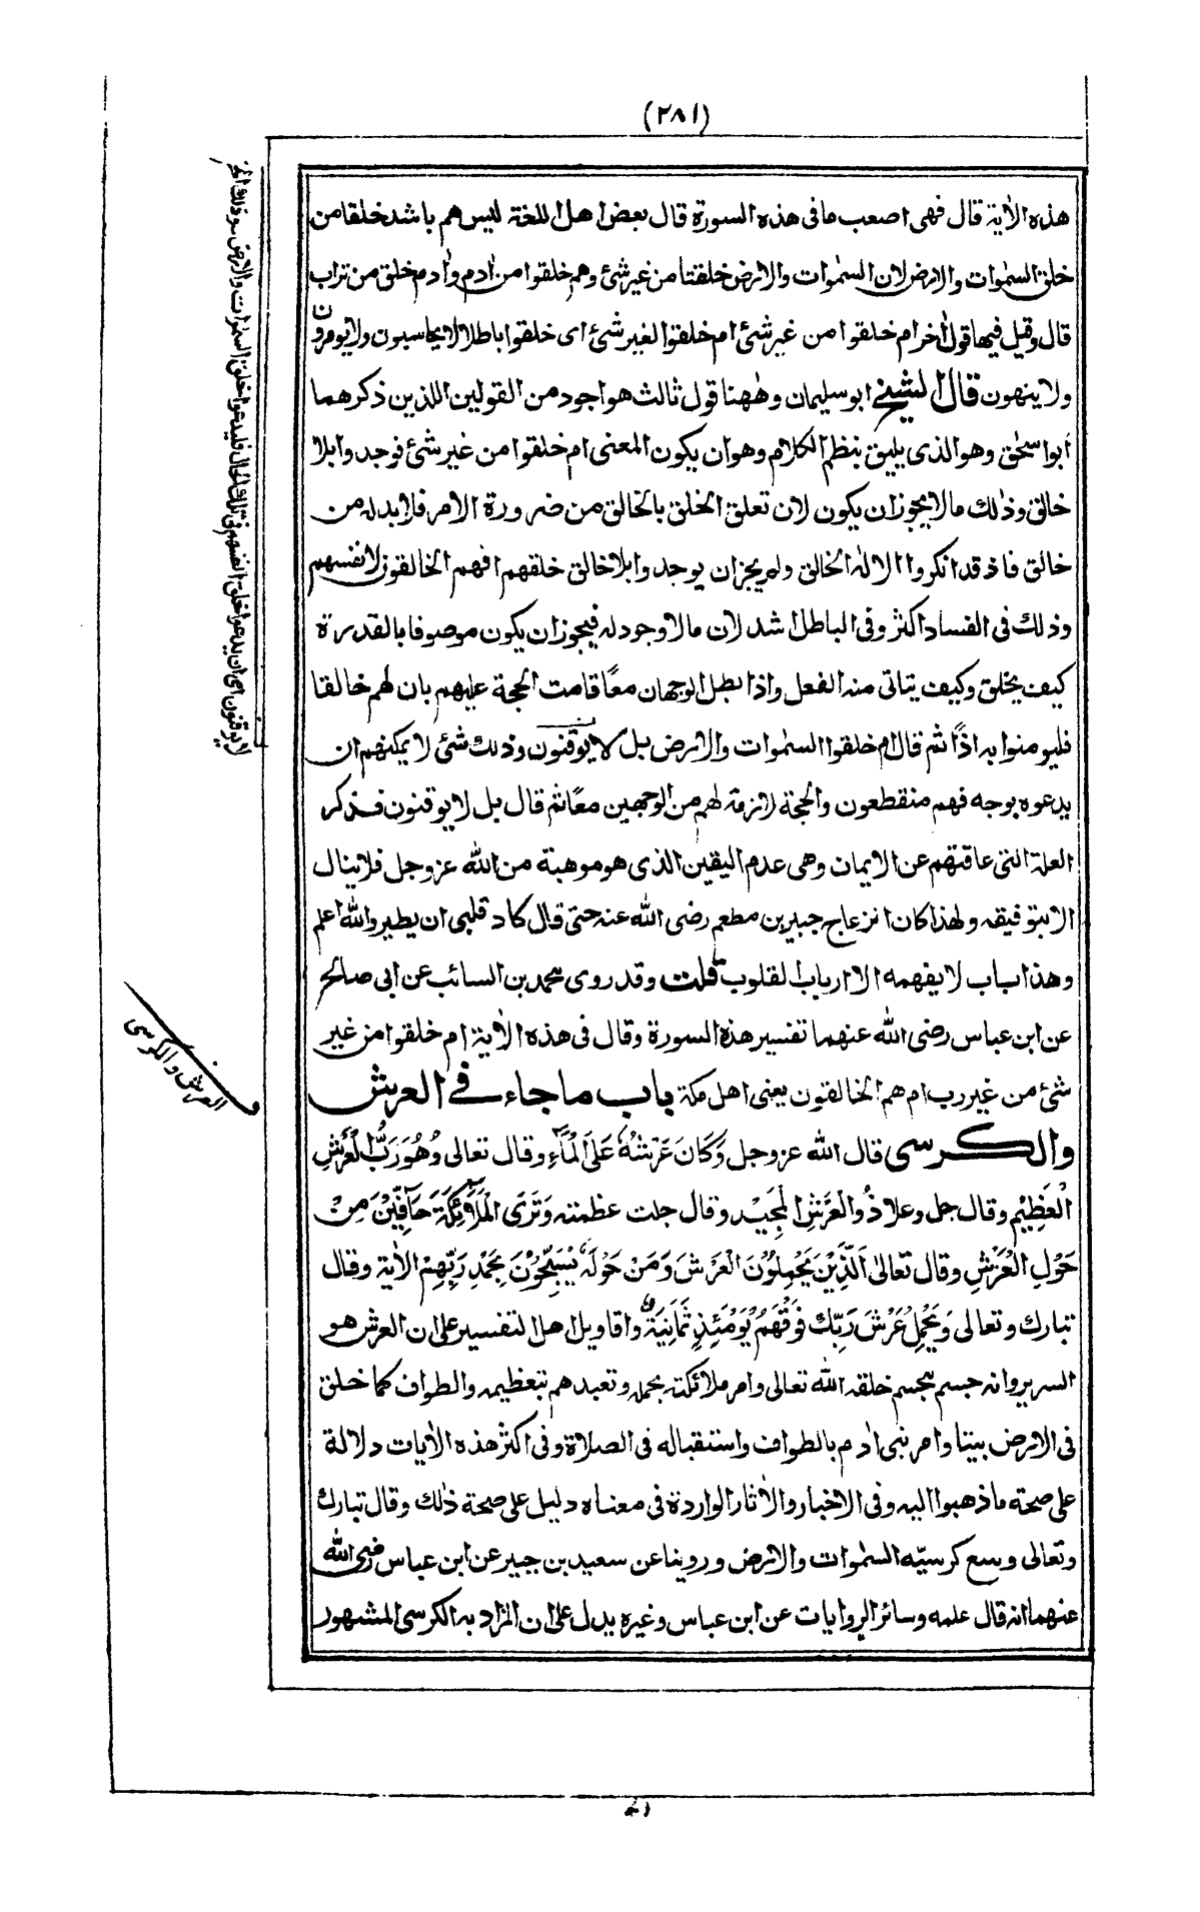 (٢٨١)
هذه الاٰية قال فهى اصعب ما فى هذه السورة قال بعض اهل اللغة ليس هم باشد خلقا من
خلق السمٰوات والارض لان السمٰوات والارض خلقتا من غير شئ وهم خلقوا من اٰدم واٰدم خلق من تراب
قال وقيل فيها قول اٰخر ام خلقوا من غير شئ ام خلقوا لغير شئ اى خلقوا باطلا لا يحاسبون ولا يومرون
ولا ينهون قال الشيخ ابو سليمان وهٰهنا قول ثالث هو اجود من القولين اللذين ذكرهما
ابو اسحٰق وهو الذى يليق بنظم الكلام وهو ان يكون المعنى ام خلقوا من غير شئ فوجدوا بلا
خالق وذٰلك ما لا يجوز ان يكون لان تعلق الخلق بالخالق من ضرورة الامر فلا بد له من
خالق فاذ قد انكروا الالٰه الخالق ولم يجز ان يوجدوا بلا خالق خلقهم افهم الخالقون لانفسهم
وذلك فى الفساد اكثر وفى الباطل اشد لان ما لا وجود له فيجوز ان يكون موصوفا بالقدرة
كيف يخلق وكيف يتاتى منه الفعل واذا بطل الوجهان معًا قامت الحجة عليهم بان لهم خالقا
فليومنوا به اذًا ثم قال ام خلقوا السمٰوات والارض بل لا يوقنون وذلك شئ لا يمكنهم ان
يدعوه بوجه فهم منقطعون والحجة لازمة لهم من الوجهين معًا ثم قال بل لا يوقنون فذكر
العلة التى عاقتهم عن الايمان وهى عدم اليقين الذى هو موهبة من الله عز وجل فلا ينال
الا بتوفيقه ولهذا كان انزعاج جبير بن مطعم رضى الله عنه حتى قال كاد قلبى ان يطير والله اعلم
وهذا باب لا يفهمه الا ارباب القلوب قلت وقد روى محمد بن السائب عن ابى صالح
عن ابن عباس رضى الله عنهما تفسير هذه السورة وقال فى هذه الاٰية ام خلقوا من غير
شئ من غير رب ام هم الخالقون يعنى اهل مكة باب ما جاء فى العرش
والكرسى قال الله عز وجل وَكَانَ عَرْشُهٗ عَلَى الْمَآءِ وقال تعالى وَهُوَ رَبُّ الْعَرْشِ
الْعَظِيْمِ وقال جل وعلا ذُو الْعَرْشِ الْمَجِيْد وقال جلت عظمته وَتَرَى الْمَلٰٓئِكَةَ حَآفِّيْنَ مِنْ
حَوْلِ الْعَرْشِ وقال تعالىٰ اَلَّذِيْنَ يَحْمِلُوْنَ الْعَرْشَ وَمَنْ حَوْلَهٗ يُسَبِّحُوْنَ بِحَمْدِ رَبِّهِمْ الاٰية وقال
تبارك وتعالى وَيَحْمِلُ عَرْشَ رَبِّكَ فَوْقَهُمْ يَوْمَئِذٍ ثَمَانِيَةٌ واقاويل اهل التفسير على ان العرش هو
السرير وانه جسم مجسم خلقه الله تعالى وامر ملائكته بحمله وتعبدهم بتعظيمه والطواف كما خلق
فى الارض بيتا وامر بنى اٰدم بالطواف واستقباله فى الصلاة وفى اكثر هذه الاٰيات دلالة
على صحة ما ذهبوا اليه وفى الاخبار والاٰثار الواردة فى معناه دليل على صحة ذٰلك وقال تبارك
وتعالى وسع كرسيّه السمٰوات والارض وروينا عن سعيد بن جبير عن ابن عباس رضى الله
عنهما انه قال علمه وسائر الروايات عن ابن عباس وغيره يدل على ان المراد به الكرسى المشهور
لا يوقنون اى ان يدعوا خلق انفسهم فى تلك الحال فليدعوا خلق السمٰوات والارض وذلك
العرش والكرسى